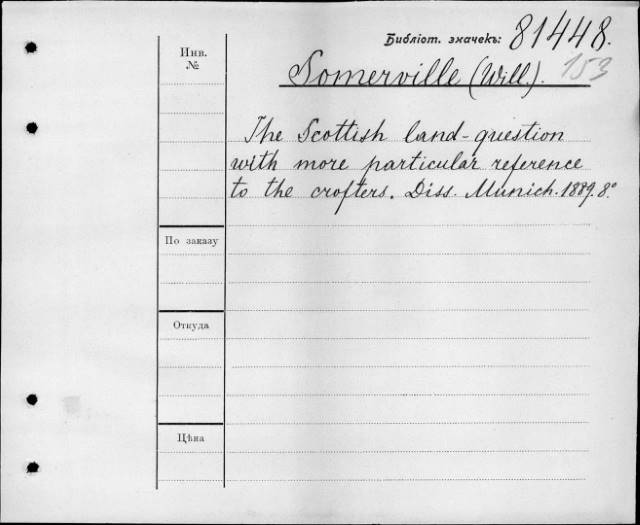 Библіот. значекъ: 81448.
153
Инв.
№
Somerville (Will).
The Scottish land-question
with more particular reference
to the crofters. Diss. Munich. 1889. 8°
По заказу
Откуда
Цѣна